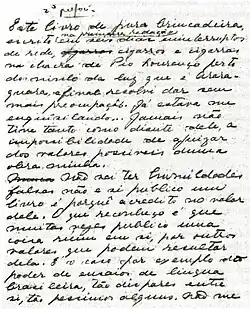 2º prefácio
Este livro de pura brincadeira
escrito em primeira redação
seis dias ininterruptos
de rede, cigarros e cigarras
na chacra de Pio Lourenço perto
do ninho da luz que é Arara-
quara, afinal resolvi dar sem
mais preocupação. Já estava me
enquisilando... Jamais não
tive tanto como diante dele, a
impossibilidade de ajuizar
dos valores possíveis duma
obra minha.
Não sei ter humildades
falsas não e si publico um
livro é porquê acredito no valor
dele. O que reconheço é que
muitas vezes publico uma
coisa ruim em si, por outros
valores que podem resultar
dela. É o caso por exemplo do
poder de ensaios de língua
brasileira, tão díspares entre
si, tão péssimos alguns. Não me